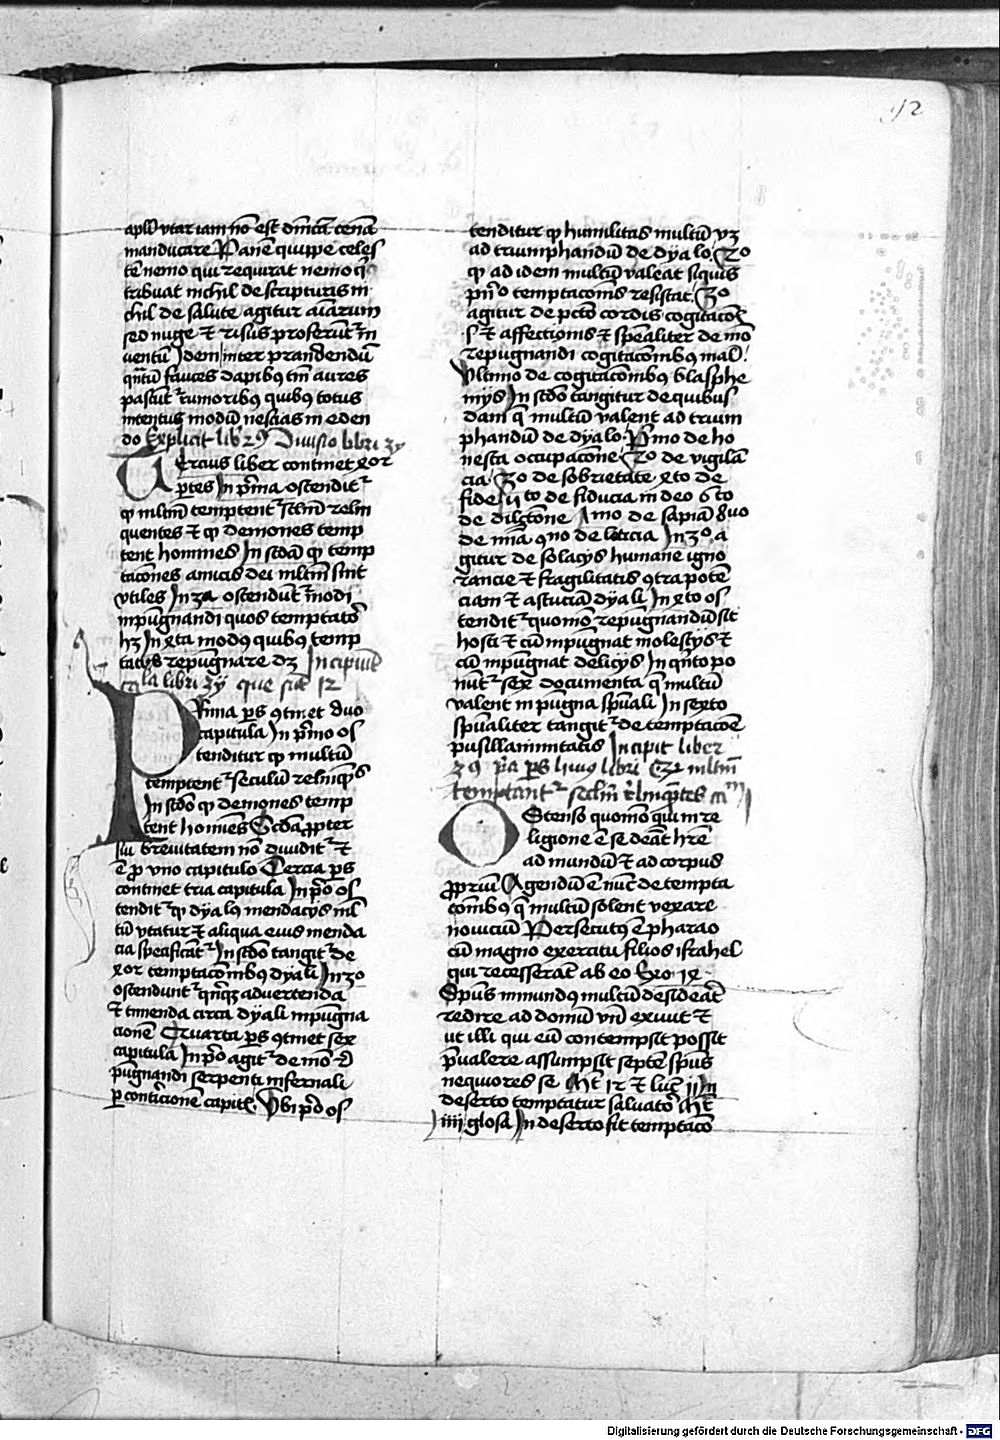 92
apl͞s vtar iam nō est dn̄icā cenā
manducare Panē quippe celes
tē nemo qui requirat nemo q̄
tribuat nichil de scripturis ni
chil de salute agitur aīarum
sed nuge et risus proferūt᷑ in
ventū Idem inter prandendū
quātū fauces dapibus tm̄ aures
pascūt᷑ rumoribꝰ quibꝰ totus
intentus modū nescias in eden
do Explicit lib 2ꝰ Diuisio libri 3ij
Tercius liber continet xor
p̄tes In p̄ma ostendit᷑
ꝙ mltm̄ temptent᷑ sclm̄ relin
quentes et ꝙ demones temp
tent homines In scdā ꝙ temp
tacōnes amicis dei mltm̄ sint
vtiles In 3a ostendūt᷑ modi
inpugnandi quos temptatō
hꝫ In xta modus quibꝰ temp
tatꝰ repugnare dꝫ Incipiūt
cla libri 3ij que sūt 12
Prima p̄s ꝯtinet duo
capitula In p̄mo os
tenditur ꝙ multū
temptent᷑ seculū relinq̄s
In scdo ꝙ demones temp
tent homīes Scdā ꝓpter
sui breuitatem nō diuidit᷑ et
ē ꝓ vno capitulo Tercia p̄s
continet tria capitula In p̄o os
tendit᷑ ꝙ dyalꝰ mendacijs ml̄
tū vtatur et aliqua eius menda
cia specificāt᷑ In scdo tangit᷑ de
xor temptacōnibꝰ dyali In 3o
ostendunt᷑ qn̄qꝫ aduertenda
et timenda circa dyali inpugna
cionē Quarta p̄s ꝯtinet sex
capitula In p̄o agit᷑ de mō r̄
pugnandi serpenti infernali
per contricionē capitꝭ Vbi p̄do os
tenditur ꝙ humilitas multū vꝫ
ad triumphandū de dyalo 2o
ꝙ ad idem multū valeat si quis
p̄n̄o temptacōnis resistat 3o
agitur de pctō cordis cogitacōꝭ
s et affectionis et spēaliter de mō
repugnandi cogitacōnibꝰ mal̄
Vltimo de cogitacōnibꝰ blasphe
mijs In scdō tangitur de quibus
dam q̄ multū valent ad trium
phandū de dyalo Pͥmo de ho
nesta occupacōne 2o de vigilā
cia 3o de sobrietate xto de
fide ij to de fiducia in deo 6 to
de dilctōne Amo de sapiā 8uo
de miā ꝯno de leticia In 3o a
gitur de solacijs humane igno
rancie et fragilitatis ꝯtra potē
ciam et astuciā dyali In xto os
tendit᷑ quomō repugnandū sit
hosti et cū inpugnat molestijs et
cū inpugnat delicijs In qn̄to po
nūt᷑ sex documenta q̄ multū
valent in pugna spūali In sexto
spūaliter tangit᷑ de temptacōe
pusillanimitatis Incipit liber
3ꝰ p̄a p̄s huiꝰ libri Qꝫ mltm̄
temptant᷑ seclm̄ relinq̄ntes ca m I
Ostenso quomō qui in re
ligione ē se debeat hr̄e
ad mundū et ad corpus
ꝓpriū Agendū ē nūc de tempta
cōnibꝰ q̄ multū solent vexare
nouiciū Persecutꝰ ē pharao
cū magno exercitu filios israhel
qui recesserāt ab eo Exo 14
Spūs inmundꝰ multū desiderat
redire ad domū vn̄ exiuit et
ut illi qui eū contempsit possit
p̄ualere assumpsit septē spūs
nequiores se Mt̄ 12 et luc̄ 11 In
deserto temptatur saluator Mt̄
iiij glosa In deserto fit temptacō
Digitalisierung gefördert durch die Deutsche Forschungsgemeinschaft - DFG